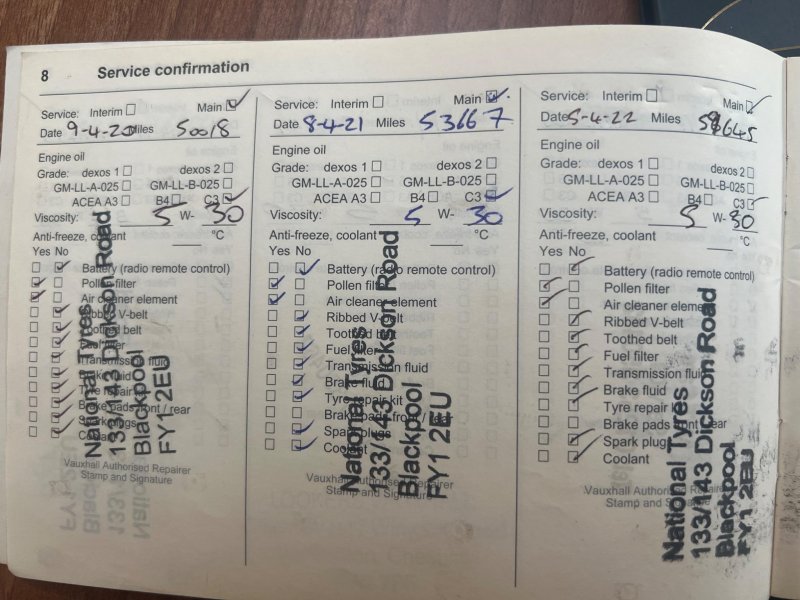 8 Service confirmation
Service: Interim Main
Date 9-4-20 Miles 50018
Engine oil
Grade: dexos 1 dexos 2
GM-LL-A-025 GM-LL-B-025
ACEA A3 B4 C3
Viscosity: 5 W- 30
Anti-freeze, coolant °C
Yes No
Battery (radio remote control)
Pollen filter
Air cleaner element
Ribbed V-belt
Toothed belt
Fuel filter
Transmission fluid
Brake fluid
Tyre repair kit
Brake pads front / rear
Spark plugs
Coolant
Vauxhall Authorised Repairer
Stamp and Signature
National Tyres
133/143 Dickson Road
Blackpool
FY1 2EU
Service: Interim Main
Date 8-4-21 Miles 53667
Engine oil
Grade: dexos 1 dexos 2
GM-LL-A-025 GM-LL-B-025
ACEA A3 B4 C3
Viscosity: 5 W- 30
Anti-freeze, coolant °C
Yes No
Battery (radio remote control)
Pollen filter
Air cleaner element
Ribbed V-belt
Toothed belt
Fuel filter
Transmission fluid
Brake fluid
Tyre repair kit
Brake pads front / rear
Spark plugs
Coolant
Vauxhall Authorised Repairer
Stamp and Signature
National Tyres
133/143 Dickson Road
Blackpool
FY1 2EU
Service: Interim Main
Date 5-4-22 Miles
Engine oil
Grade: dexos 1 dexos 2
GM-LL-A-025 GM-LL-B-025
ACEA A3 B4 C3
Viscosity: 5 W- 30
Anti-freeze, coolant °C
Yes No
Battery (radio remote control)
Pollen filter
Air cleaner element
Ribbed V-belt
Toothed belt
Fuel filter
Transmission fluid
Brake fluid
Tyre repair kit
Brake pads front / rear
Spark plugs
Coolant
Vauxhall Authorised Repairer
Stamp and Signature
National Tyres
133/143 Dickson Road
Blackpool
FY1 2EU